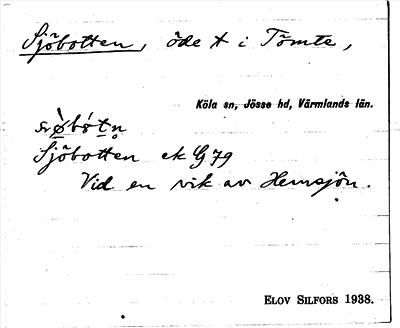 Sjöbotten, öde t i Tömte,
Köla sn, Jösse hd, Värmlands län.
Sjöbotten ek G 79
Vid en vik av Hemsjön.
ELOV SILFORS 1938.